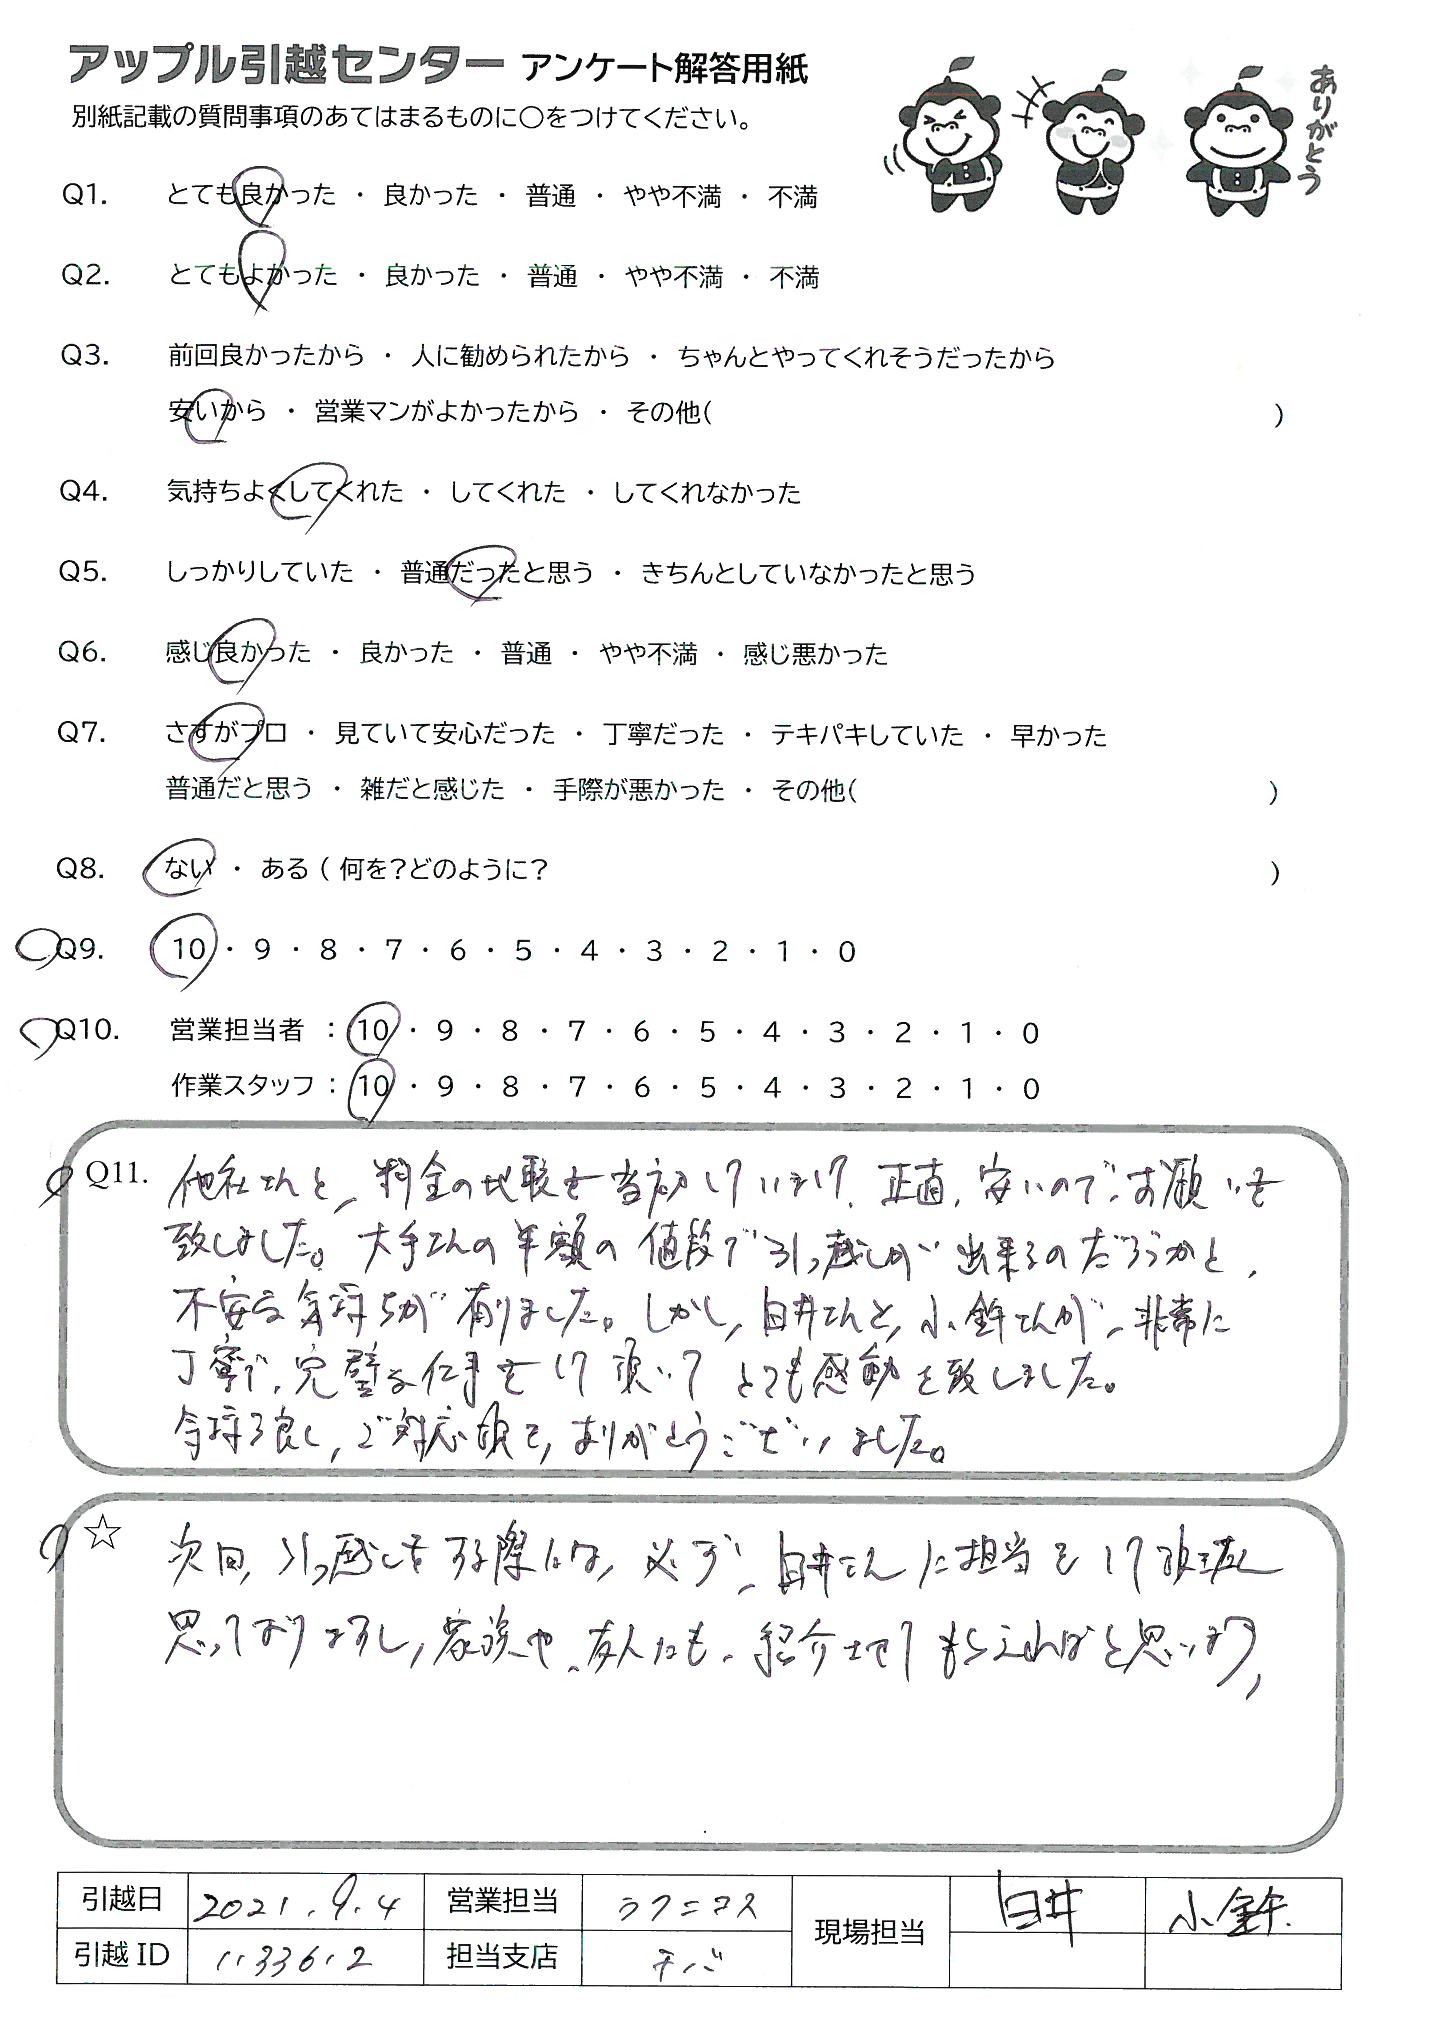 アップル引越センター アンケート解答用紙
別紙記載の質問事項のあてはまるものに○をつけてください。
ありがとう
Q1. とても良かった ・ 良かった ・ 普通 ・ やや不満 ・ 不満
Q2. とてもよかった ・ 良かった ・ 普通 ・ やや不満 ・ 不満
Q3. 前回良かったから ・ 人に勧められたから ・ ちゃんとやってくれそうだったから
安いから ・ 営業マンがよかったから ・ その他( )
Q4. 気持ちよくしてくれた ・ してくれた ・ してくれなかった
Q5. しっかりしていた ・ 普通だったと思う ・ きちんとしていなかったと思う
Q6. 感じ良かった ・ 良かった ・ 普通 ・ やや不満 ・ 感じ悪かった
Q7. さすがプロ ・ 見ていて安心だった ・ 丁寧だった ・ テキパキしていた ・ 早かった
普通だと思う ・ 雑だと感じた ・ 手際が悪かった ・ その他( )
Q8. ない ・ ある ( 何を?どのように? )
Q9. 10 ・ 9 ・ 8 ・ 7 ・ 6 ・ 5 ・ 4 ・ 3 ・ 2 ・ 1 ・ 0
Q10. 営業担当者 : 10 ・ 9 ・ 8 ・ 7 ・ 6 ・ 5 ・ 4 ・ 3 ・ 2 ・ 1 ・ 0
作業スタッフ : 10 ・ 9 ・ 8 ・ 7 ・ 6 ・ 5 ・ 4 ・ 3 ・ 2 ・ 1 ・ 0
Q11. 他社さんと、料金の比較を当初していまして、正直、安いので、お願いを
致しました。大手さんの半額の値段で引っ越しが出来るのだろうかと、
不安な気持ちが有りました。しかし、臼井さんと、小鉾さんが、非常に
丁寧で、完璧な仕事をして頂いてとても感動を致しました。
気持ち良く、ご対応頂き、ありがとうございました。
☆ 次回、引っ越しをする際には、必ず、臼井さんに担当をして
思っておりますし、家族や、友人にも、紹介させてもらえればと思います、
引越日 2021.9.4 営業担当 現場担当 臼井 小鉾
引越ID 1133612 担当支店 チバ